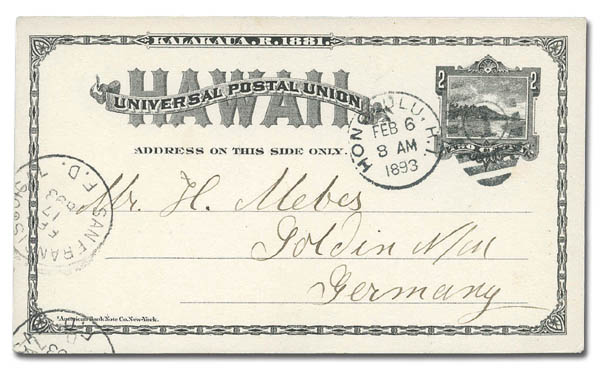 KALAKAUA. R. 1881.
HAWAII
UNIVERSAL POSTAL UNION
2 2
ADDRESS ON THIS SIDE ONLY.
HONOLULU, H.I.
FEB 6
8 AM
1893
Mr. H. Mebes
Soldin N/m
Germany
SAN FRAN
F. D.
American Bank Note Co. New-York.